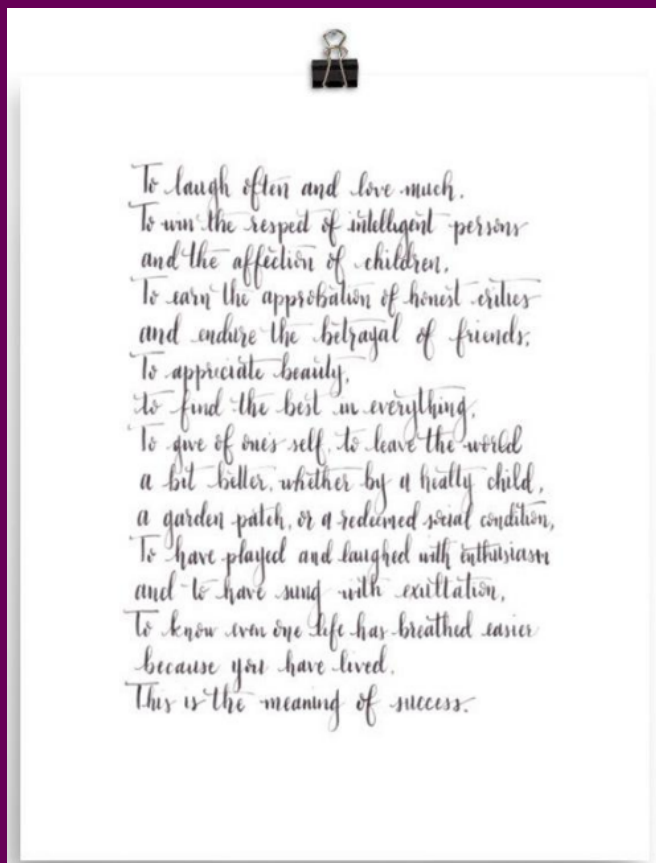 To laugh often and love much.
To win the respect of intelligent persons
and the affection of children,
To earn the approbation of honest critics
and endure the betrayal of friends;
To appreciate beauty,
to find the best in everything,
To give of one's self, to leave the world
a bit better, whether by a healty child,
a garden patch, or a redeemed social condition,
To have played and laughed with enthusiasm
and to have sung with exultation,
To know even one life has breathed easier
because you have lived.
This is the meaning of success.